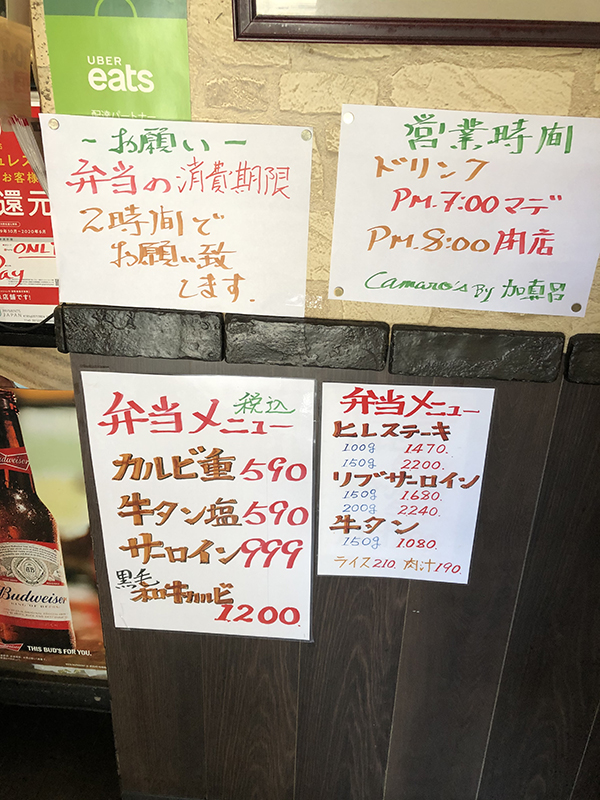 UBER
eats
配達パートナー
～お願いー
弁当の消費期限
2時間で
お願い致
します.
営業時間
ドリンク
PM.7:00マデ
PM.8:00閉店
Camaro's By 加真呂
還元
ONL
Pay
弁当メニュー 税込
カルビ重 590
牛タン塩 590
サーロイン 999
黒毛和牛カルビ
1200.
弁当メニュー
ヒレステーキ
100g 1470.
150g 2200.
リブサーロイン
150g 1680.
200g 2240.
牛タン
150g 1080.
ライス210. 肉汁190.
Budweiser
THIS BUD'S FOR YOU.